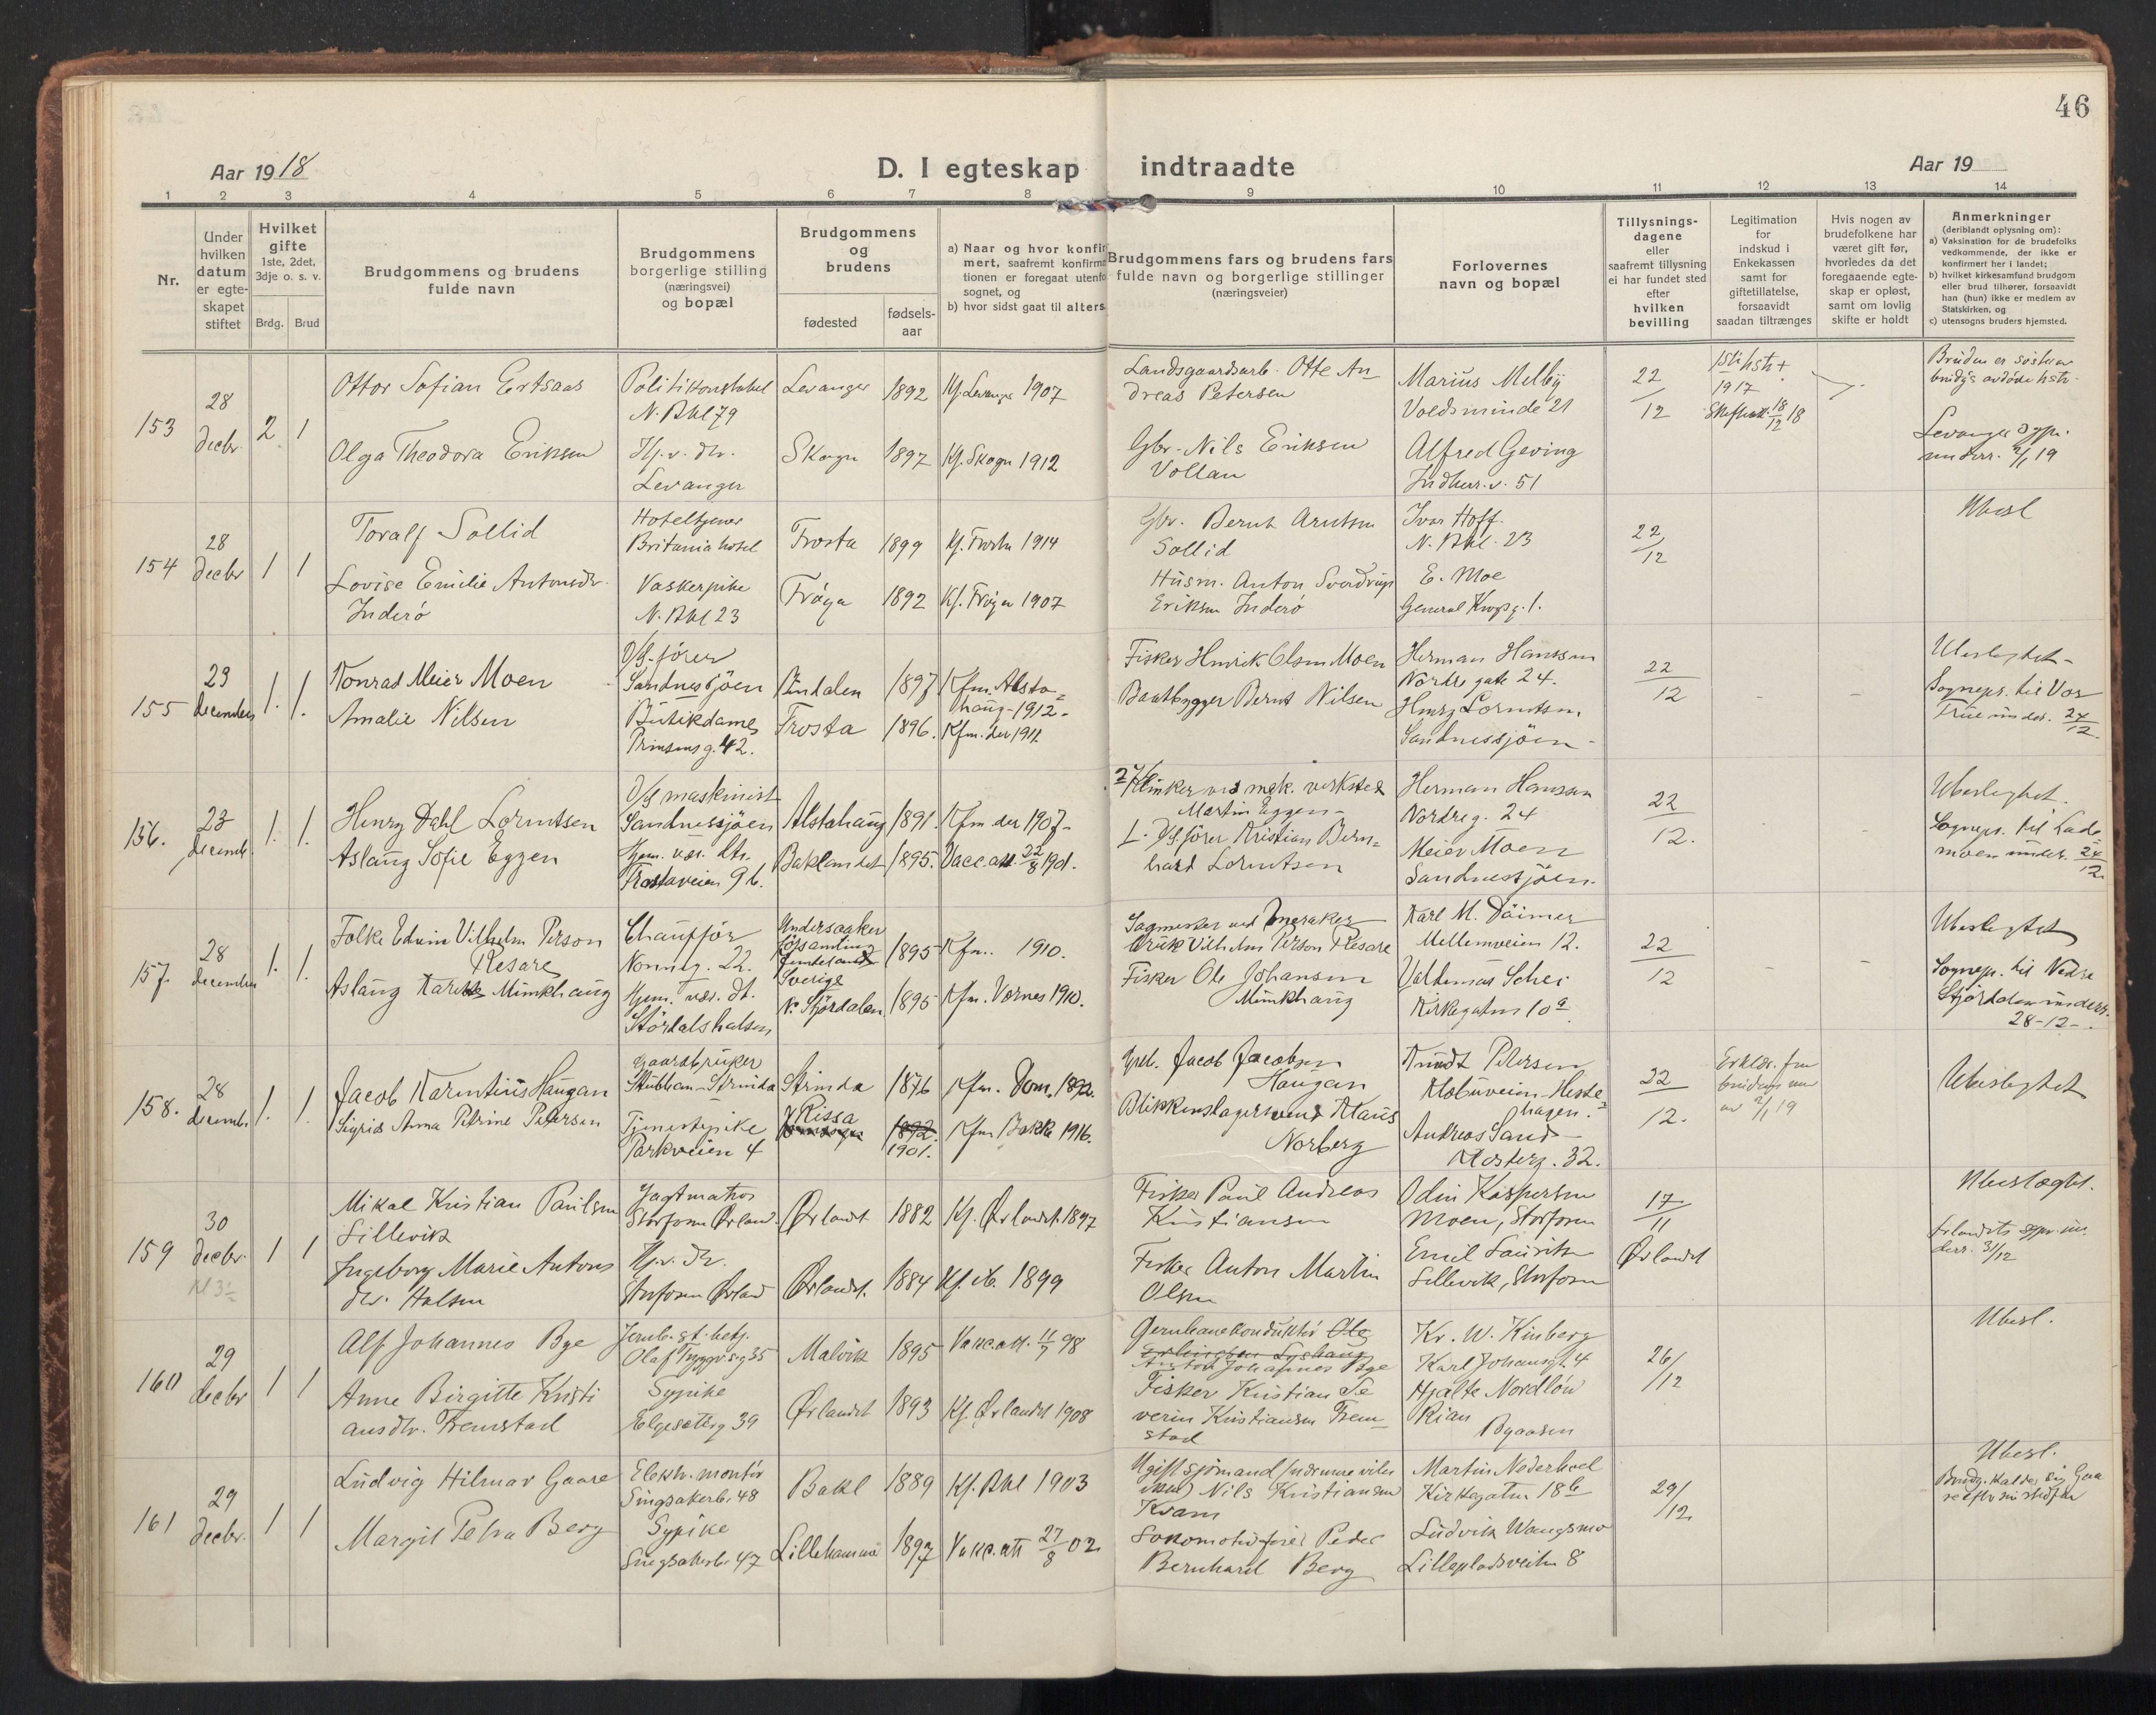 46
Aar 1918
D. I egteskap indtraadte
Aar 19
1 2 3 4 5 6 7 8 9 10 11 12 13 14
Nr.
Under
hvilken
datum
er egte-
skapet
stiftet
Hvilket
gifte
1ste, 2det,
3dje o. s. v.
Brdg.
Brud
Brudgommens og brudens
fulde navn
Brudgommens
borgerlige stilling
(næringsvei)
og bopæl
Brudgommens
og
brudens
fødested
fødsels-
aar
a) Naar og hvor konfir
mert, saafremt konfirma
tionen er foregaat utenfo
sognet, og
b) hvor sidst gaat til alters
Brudgommens fars og brudens fars
fulde navn og borgerlige stillinger
(næringsveier)
Forlovernes
navn og bopæl
Tillysnings-
dagene
eller
saafremt tillysning
ei har fundet sted
efter
hvilken
bevilling
Legitimation
for
indskud i
Enkekassen
samt for
giftetillatelse,
forsaavidt
saadan tiltrænges
Hvis nogen av
brudefolkene har
været gift før,
hvorledes da det
foregaaende egte-
skap er opløst,
samt om lovlig
skifte er holdt
Anmerkninger
(deriblandt oplysning om):
a) Vaksination for de brudefolks
vedkommende, der ikke er
konfirmert her i landet;
b) hvilket kirkesamfund brudgom
eller brud tilhører, forsaavidt
han (hun) ikke er medlem av
Statskirken, og
c) utensogns bruders hjemsted.
153
28
decbr.
2 1
Ottor Sofian Ertsaas
Olga Theodora Eriksen
Politikonstabel
N. Bkl 79
Hj. v. dtr.
Levanger
Levanger 1892 Kf. Levanger 1907
Skogn 1897 Kf. Skogn 1912
Landsgaardsarb. Otte An
dreas Petersen
Gbr. Nils Eriksen
Vollan
Marius Melby
Voldsminde 21
Alfred Geving
Indherr. v. 51
22
12
1917
18
12 18
Bruden er søster av
brudg's avdøde hstr.
Levanger sgpr.
underr. 2/1 19
154
28
decbr
1 1
Toralf Sollid
Lovise Emilie Antonsdtr.
Inderö
Hoteltjener
Britania hotel
Vaskerpike
N. Bkl 23
Frosta 1899 Kf. Frosta 1914
Fröya 1892 Kf. Fröya 1907
Gbr. Bernt Arntsen
Sollid
Husm. Anton Sverdrup
Eriksen Inderö
Ivar Hoff
N. Bkl. 23
E. Moe
General Krogsg. 1.
22
12
Ubesl
155
29
decembr
1. 1.
Konrad Meier Moen
Amalie Nilsen
D/S. förer
Sandnessjöen
Butikdame
Prinsensg. 42.
Vindalen 1897 Kfm. Alsta=
haug - 1912 -
Frosta 1896. Kfm. der 1911.
Fisker Henrik Olsen Moen
Baatbygger Bernt Nilsen
Herman Hanssen
Nordre gate 24.
Henry Lorentsen
Sandnessjöen -
22
12
Ubeslegtet -
Sogneprs. til Vor
Frue under. 24
12.
156.
23
decemb.
1. 1.
Henry Dahl Lorentsen
Aslaug Sofie Eggen
D/S maskinist
Sandnessjöen
Hjem. vær. dtr.
Frostaveien 9 b.
Alstahaug 1891. Kfm der 1907 -
Baklandet 1895. Vacc. att. 22/8 1901.
Klinker ved mek. verksted
Martin Eggen -
D/S. förer Kristian Bern=
hard Lorentsen
Herman Hanssen
Nordreg. 24
Meier Moen
Sandnessjöen.
22
12.
Ubeslegtet.
Sogneprs. til Lade=
moen under. 24
12.
157.
28
december
1. 1.
Folke Edvin Vilhelm Person
Resare
Aslaug Munkhaug
Chaufför
Nonneg. 22.
Hjem. vær. dt.
Stördalshalsen
Undersaaker
Sverige
1895 Kfm. 1910.
N. Stjördalen 1895 Kfm. Værnes 1910.
Sagmester ved Meraker
bruk Vilhelm Person Resare
Fisker Ole Johansen
Munkhaug
Karl M. Däimer
Mellemveien 12.
Valdemar Schei
Kirkegaten 10 a
22
12
Ubeslegtet
Sognepr. til Nedre
Stjördalen underr.
28-12-.
158.
28
decembr
1. 1.
Jacob Karentius Haugan
Sigrid Anna Petrine Petersen
Gaardbruker
Stubban - Strinda
Tjenestepike
Parkveien 4
Strinda 1876 Kfm. Dom. 1892.
Rissa
1892.
1901.
Kfm Bakke 1916.
Grdb. Jacob Jacobsen
Haugan
Blikkenslagersvend Klaus
Norberg
Knudt Petersen
Klæbuveien - Heste=
hagen.
Andreas Sand -
Klosterg. 32.
22
12.
Erklær. fra
av 2/1 19
Ubeslegtet
159
30
decbr.
1 1
Mikal Kristian Paulsen
Lillevik
Ingeborg Marie Antons
dtr. Halsen
Jagtmatros
Storfosen Ørland.
Hj. v. dtr.
Storfosen Ørland
Ørlandet 1882 Kf. Ørlandet 1897
Ørlandet. 1884 Kf. ib. 1899
Fisker Paul Andreas
Kristiansen
Fisker Anton Martin
Olsen
Odin Kaspersen
Moen, Storfosen
Emil Lauritz
Lillevik, Storfosen
17
11
Ørlandet
Ubeslægt.
Ørlandets sgpr. un
derr. 31/12
160
29
decbr
1 1
Alf Johannes Bye
Anne Birgitte Kristi
ansdtr. Fremstad
Jernb. st. betj.
Olaf Trygvs.g 35
Sypike
Elgesetterg 39
Malvik 1895 Vakc. att. 11/7 98
Ørlandet 1893 Kf. Ørlandet 1908
Jernbanekonduktör Ole
Anton Johannes Bye
Fisker Kristian Se
verin Kristiansen Frem-
stad
Kr. W. Kinberg
Karl Johansgt. 4
Hjalte Nordlöw
Rian
Byaasen
26/
/12
Ubesl.
161
29
decbr.
1 1
Ludvig Hilmar Gaare
Margit Petra Berg
Elektr. montör
Singsakerb. 48
Sypike
Singsakerb. 47
Bakl 1889 Kf. Bkl 1903
Lillehammer 1897 Vakc. att 27/8 02
Ugift sjömand (nærmere vites
ikke) Nils Kristiansen
Kvam
Lokomotivförer Peder
Bernhard Berg
Martin Nederhoel
Kirkegaten 18 b
Ludvik Wangsmo
Lillepladsveiten 8
29/
/12
Ubesl.
Brudg. kalder sig Gaa